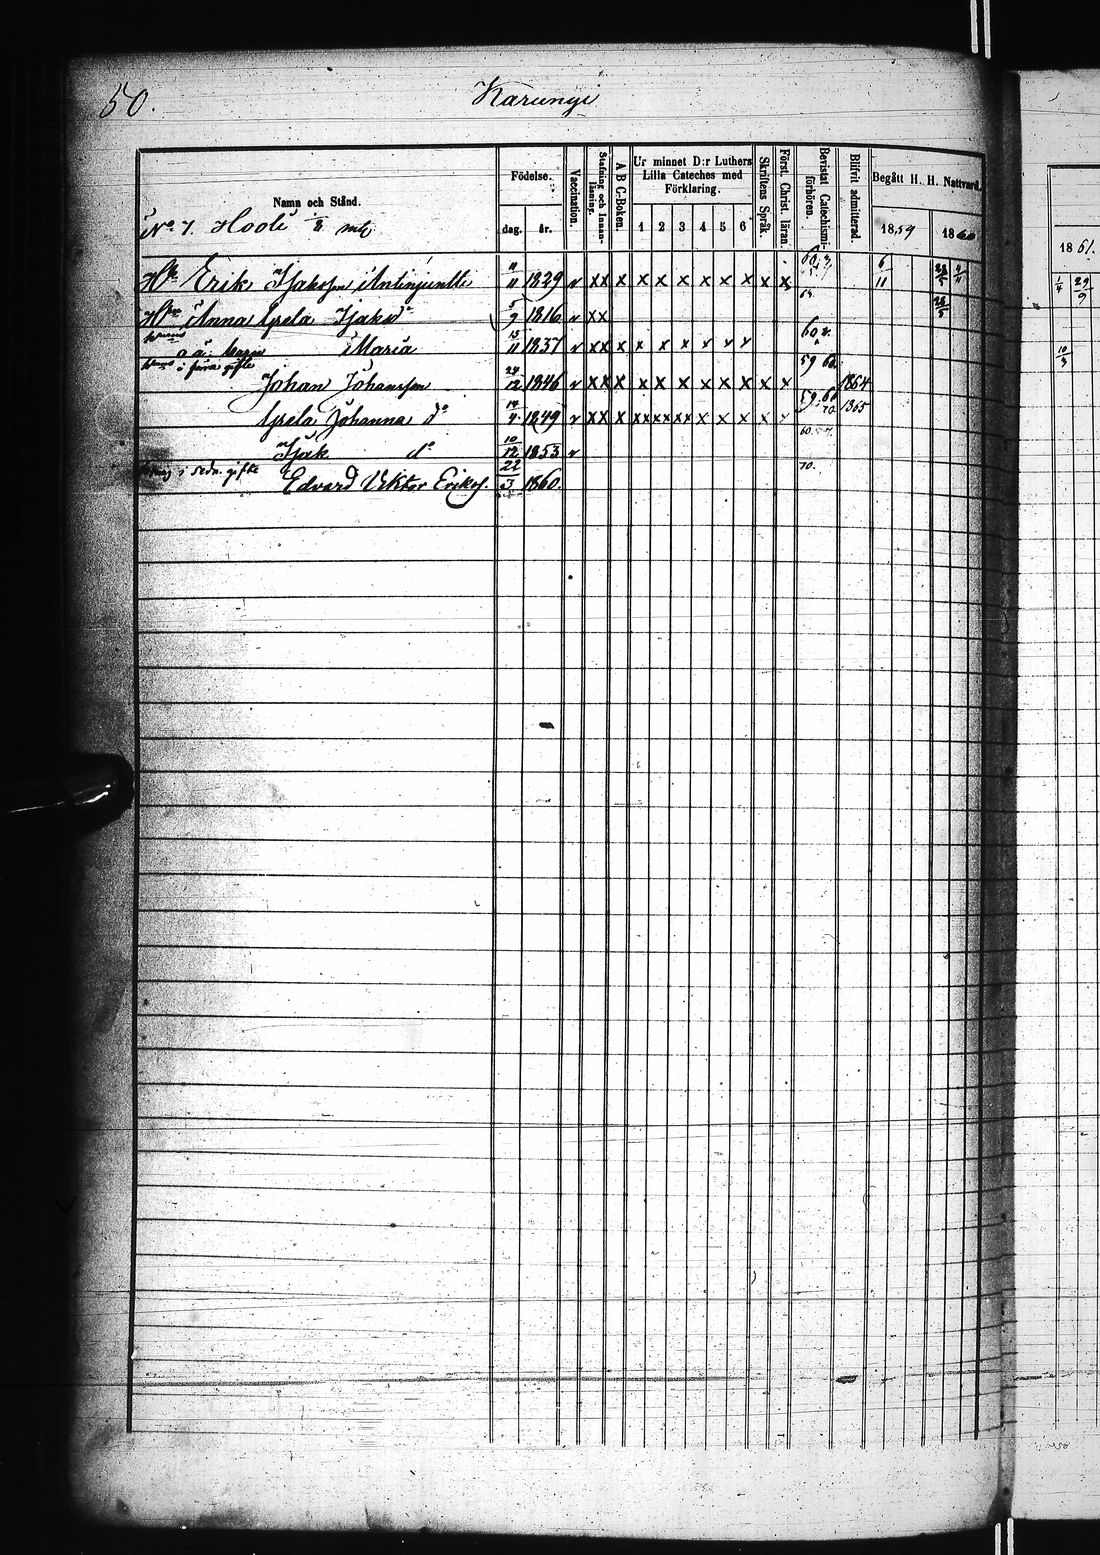 50.
Karungi
Namn och Stånd.
Födelse.
dag. år.
Vaccination.
Stafning och Innanläsning.
A B C-Boken.
Ur minnet D:r Luthers Lilla Cateches med Förklaring.
1 2 3 4 5 6
Skriftens Språk.
Först. Christ. läran.
Bevistat Catechismiförhören.
Blifvit admitterad.
Begått H. H. Nattvard.
1859 1860
1861.
No 7. Hooli
Erik Isaksson Antinjuntti 11/11 1829 v xx x x x x x x x x x 6/11
Anna Greta Isaksdr 5/9 1816 v xx
Maria 15/11 1837 v xx x x x x x x x
i förra gifte
Johan Johansson 24/12 1846 v xx x x x x x x x x x 59 60. 1864
Greta Johanna do 14/4 1849 v xx x xx xx xx x x x x x 1865
Isak do 10/12 1853 v
i sedn. gifte
Edvard Viktor Erikss. 22/3 1860. 70.